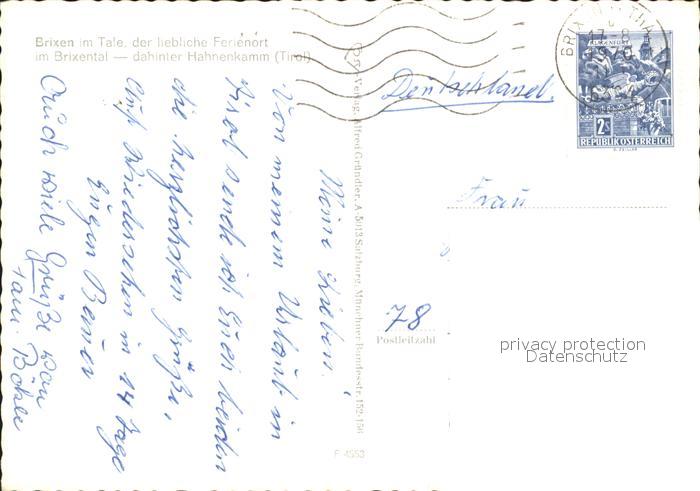 Brixen im Tale, der liebliche Ferienort
im Brixental — dahinter Hahnenkamm (Tirol)
Deutschland.
KLAGENFURT
2 S
REPUBLIK ÖSTERREICH
BRIXEN IM THALE
Frau
78
Postleitzahl
privacy protection
Datenschutz
Verlag Alfred Gründler, A-5013 Salzburg, Münchner Bundesstr. 152-156
F 4553
Meine Lieben!
Von meinem Urlaub in
Tirol sende ich Euch beiden
die herzlichsten Grüße,
Auf Wiedersehen in 14 Tage
Eugen Bauer
Auch viele Grüße von
Fam.